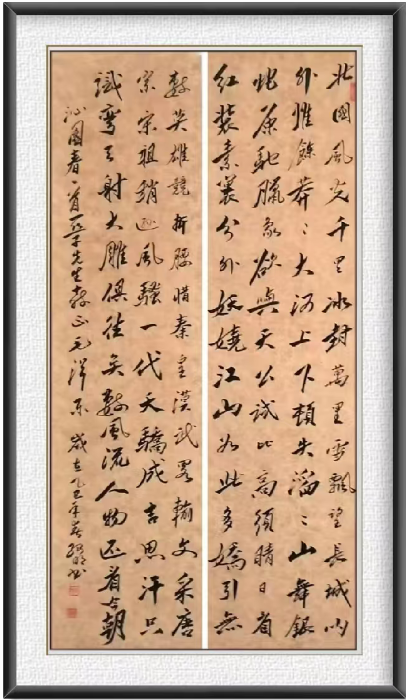 北國風光千里冰封萬里雪飄望長城内
外惟餘莽〻大河上下頓失滔〻山舞銀
蛇原馳臘象欲與天公試比高須晴日看
紅裝素裹分外妖嬈江山如此多嬌引無
數英雄競折腰惜秦皇漢武略輸文采唐
宗宋祖稍遜風騷一代天驕成吉思汗只
識彎弓射大雕俱往矣數風流人物還看今朝
沁園春一首 先生教正毛澤東 歲在乙巳年春 書